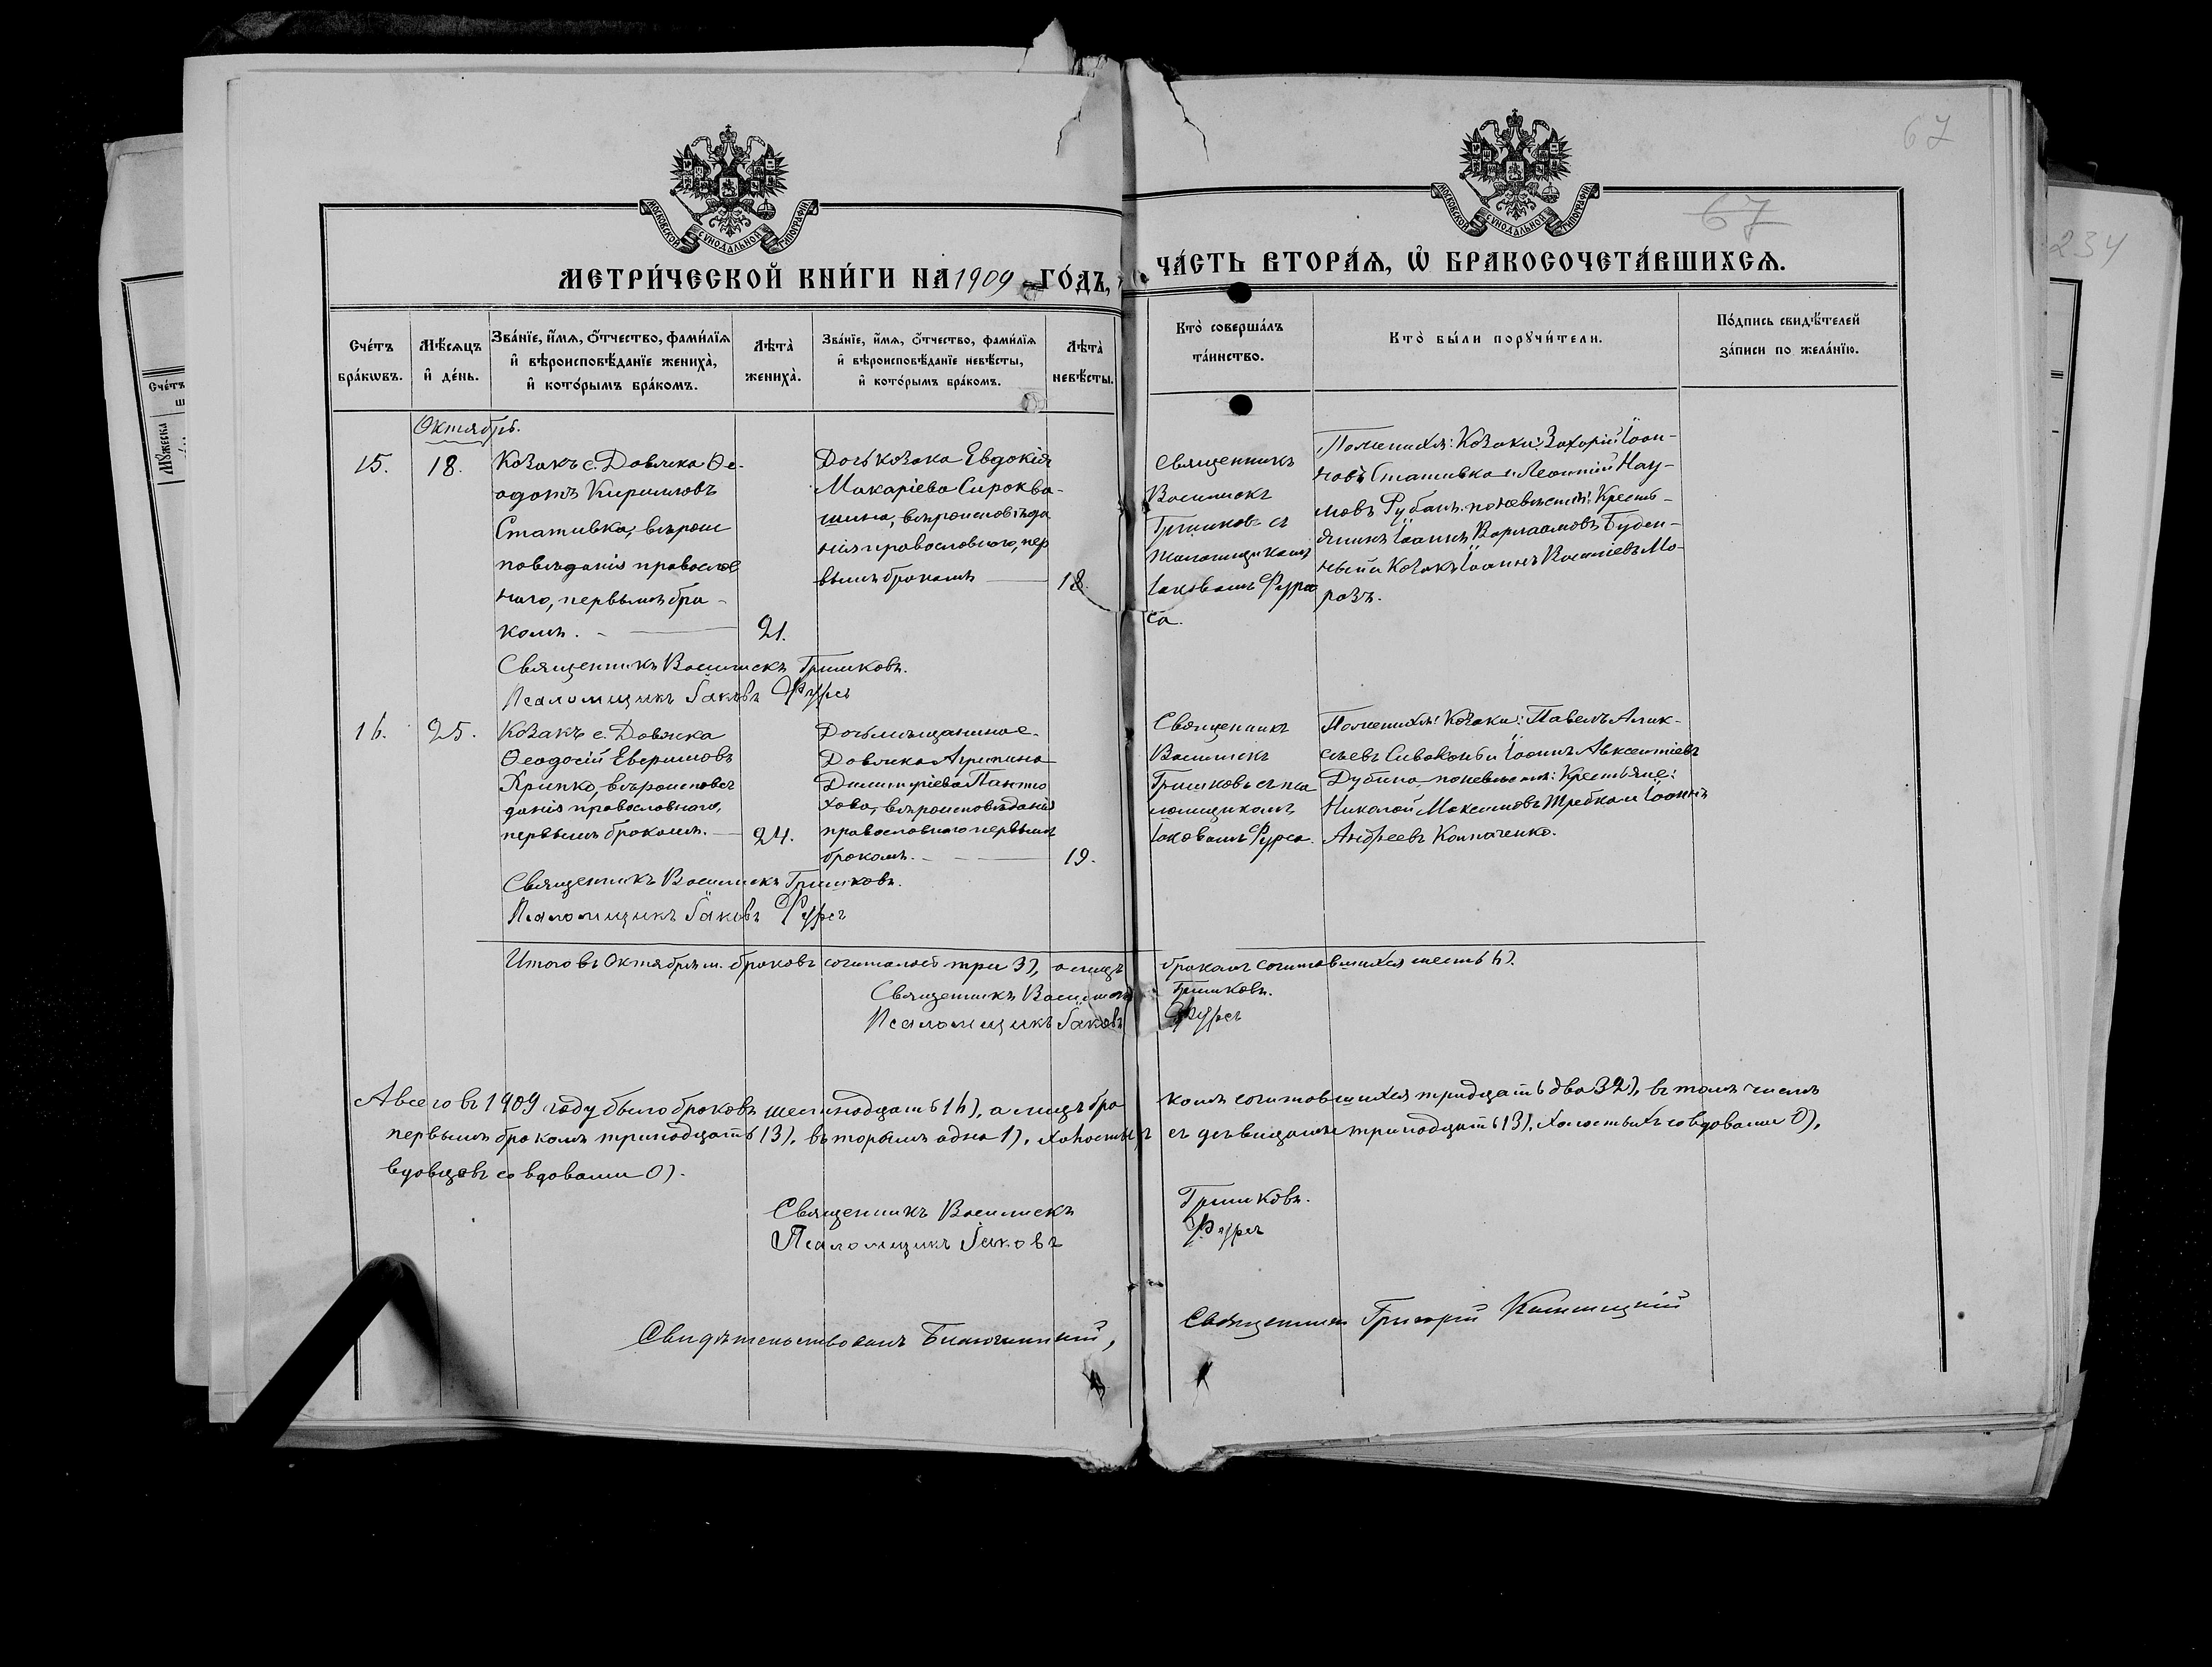 67
67
234
МОСКОВСКОЙ СѴНОДАЛЬНОЙ ТИПОГРАФІИ
МОСКОВСКОЙ СѴНОДАЛЬНОЙ ТИПОГРАФІИ
МЕТРИ́ЧЕСКОЙ КНИ́ГИ НА 1909 ГО́ДЪ,
ЧА́СТЬ ВТОРА́Ѧ, Ѡ҆ БРАКОСОЧЕТА́ВШИХСѦ.
Сче́тъ
бра́кѡвъ.
Мѣ́сѧцъ
и҆ де́нь.
Зва́нїе, и҆́мѧ, ѻ҆́тчество, фами́лїѧ
и҆ вѣроисповѣ́данїе жениха̀,
и҆ кото́рымъ бра́комъ.
Лѣта̀
жениха̀.
Зва́нїе, и҆́мѧ, ѻ҆́тчество, фами́лїѧ
и҆ вѣроисповѣ́данїе невѣ́сты,
и҆ кото́рымъ бра́комъ.
Лѣта̀
невѣ́сты.
Кто̀ соверша́лъ
та́инство.
Кто̀ бы́ли порꙋчи́тели.
По́дпись свидѣ́телей
за́писи по жела́нїю.
Октябрь.
15.
18.
Козакъ с. Довжка Ѳе-
одотъ Кирилловъ
Стативка, вѣроис
повѣданія православ
наго, первымъ бра-
комъ.
21.
Дочь козака Евдокія
Макаріева Сироква-
шина, вѣроисповѣда
нія православного, пер
вымъ бракомъ
18.
Священникъ
Василискъ
Гришковъ съ
псаломщикомъ
Іаковомъ Фурса
са.
По женихѣ: Козаки: Захарій Іоан-
новъ Стативка и Леонтій Нау-
мовъ Рубанъ. по невѣстѣ: Кресть-
янинъ Іоаннъ Варлаамовъ Буден-
ный и Козакъ Іоаннъ Василіевъ Мо-
розъ.
Священникъ Василискъ Гришковъ.
Псаломщикъ Іаковъ Фурса
16.
25.
Козакъ с. Довжка
Ѳеодосій Евфимовъ
Хрипко, вѣроисповѣ
данія православнаго,
первымъ бракомъ.
24.
Дочь мѣщанина с.
Довжка Агрипина
Димитріева Панто
хова, вѣроисповѣданія
православнаго первымъ
бракомъ.
19.
Священникъ
Василискъ
Гришковъ съ пса
ломщикомъ
Іаковомъ Фурса.
По женихѣ: Козаки: Павелъ Алик-
сѣевъ Сивоконь и Іоаннъ Авксентіевъ
Дубина, по невѣстѣ: Крестьяне:
Николай Максимовъ Требка и Іоаннъ
Андреевъ Колпаченко.
Священникъ Василискъ Гришковъ.
Псаломщикъ Іаковъ Фурса
Итого въ Октябрѣ м. браковъ сочиталось три 3), а лицъ бракомъ сочитавшихся шесть 6).
Священникъ Василискъ Гришковъ.
Псаломщикъ Іаковъ Фурса
А всего въ 1909 году было браковъ шестнадцать 16), а лицъ бра комъ сочитавшихся тридцать два 32), въ томъ числѣ
первымъ бракомъ тринадцать 13), вторымъ одно 1), холостыхъ съ дѣвицами тринадцать 13), холостыхъ со вдовами 0),
вдовцовъ со вдовами 0).
Священникъ Василискъ Гришковъ.
Псаломщикъ Іаковъ Фурса
Свидѣтельствовалъ Благочинный, Священникъ Григорій